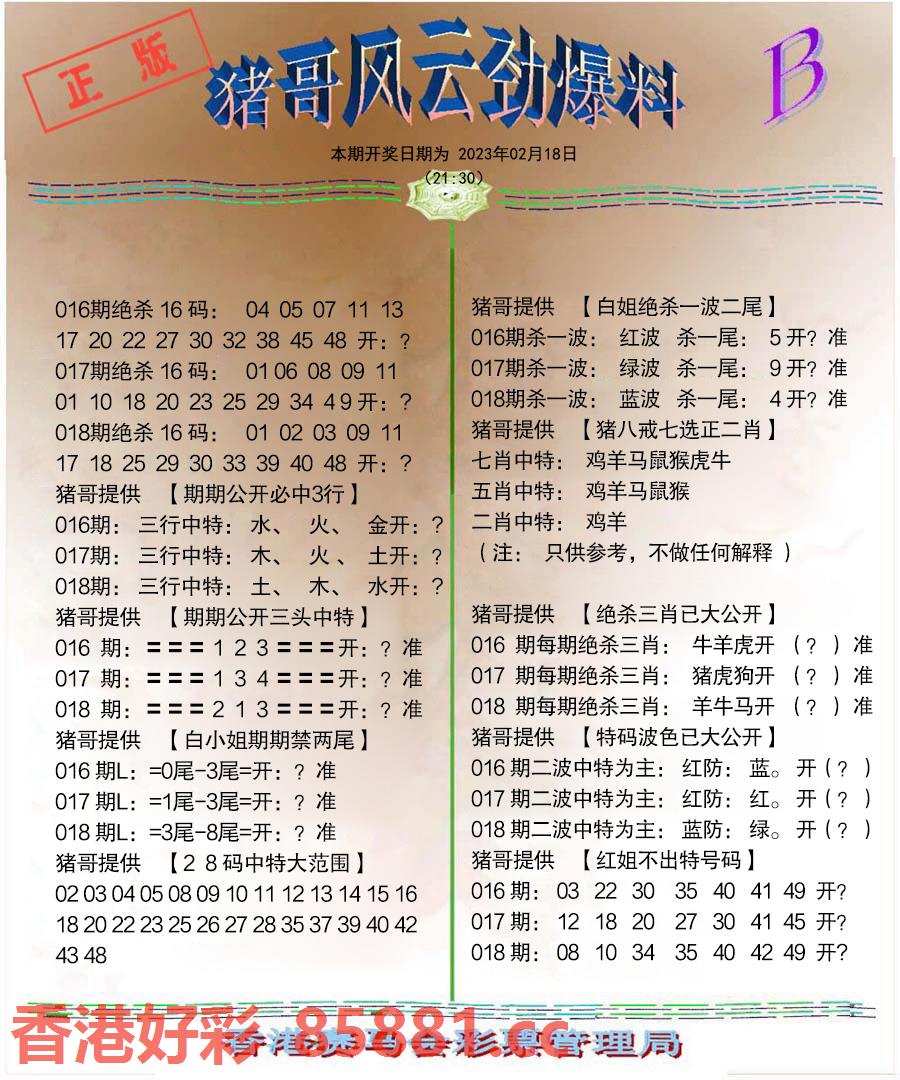 正版
猪哥风云劲爆料
B
本期开奖日期为 2023年02月18日
(21:30)
016期绝杀 16 码： 04 05 07 11 13
17 20 22 27 30 32 38 45 48 开：?
017期绝杀 16 码： 01 06 08 09 11
01 10 18 20 23 25 29 34 49 开：?
018期绝杀 16 码： 01 02 03 09 11
17 18 25 29 30 33 39 40 48 开：?
猪哥提供 【期期公开必中3行】
016期： 三行中特：水、 火、 金开：?
017期： 三行中特：木、 火、 土开：?
018期： 三行中特：土、 木、 水开：?
猪哥提供 【期期公开三头中特】
016 期：＝＝＝1 2 3＝＝＝开：? 准
017 期：＝＝＝1 3 4＝＝＝开：? 准
018 期：＝＝＝2 1 3＝＝＝开：? 准
猪哥提供 【白小姐期期禁两尾】
016 期L：=0尾-3尾=开：? 准
017 期L：=1尾-3尾=开：? 准
018 期L：=3尾-8尾=开：? 准
猪哥提供 【２８码中特大范围】
02 03 04 05 08 09 10 11 12 13 14 15 16
18 20 22 23 25 26 27 28 35 37 39 40 42
43 48
猪哥提供 【白姐绝杀一波二尾】
016期杀一波： 红波 杀一尾： 5 开? 准
017期杀一波： 绿波 杀一尾： 9 开? 准
018期杀一波： 蓝波 杀一尾： 4 开? 准
猪哥提供 【猪八戒七选正二肖】
七肖中特： 鸡羊马鼠猴虎牛
五肖中特： 鸡羊马鼠猴
二肖中特： 鸡羊
（注： 只供参考，不做任何解释 ）
猪哥提供 【绝杀三肖已大公开】
016 期每期绝杀三肖： 牛羊虎开 （? ）准
017 期每期绝杀三肖： 猪虎狗开 （? ）准
018 期每期绝杀三肖： 羊牛马开 （? ）准
猪哥提供 【特码波色已大公开】
016 期二波中特为主： 红防： 蓝。 开（? ）
017 期二波中特为主： 红防： 红。 开（? ）
018 期二波中特为主： 蓝防： 绿。 开（? ）
猪哥提供 【红姐不出特号码】
016 期： 03 22 30 35 40 41 49 开?
017 期： 12 18 20 27 30 41 45 开?
018 期： 08 10 34 35 40 42 49 开?
香港好彩 85881.cc
香港赛马会彩票管理局